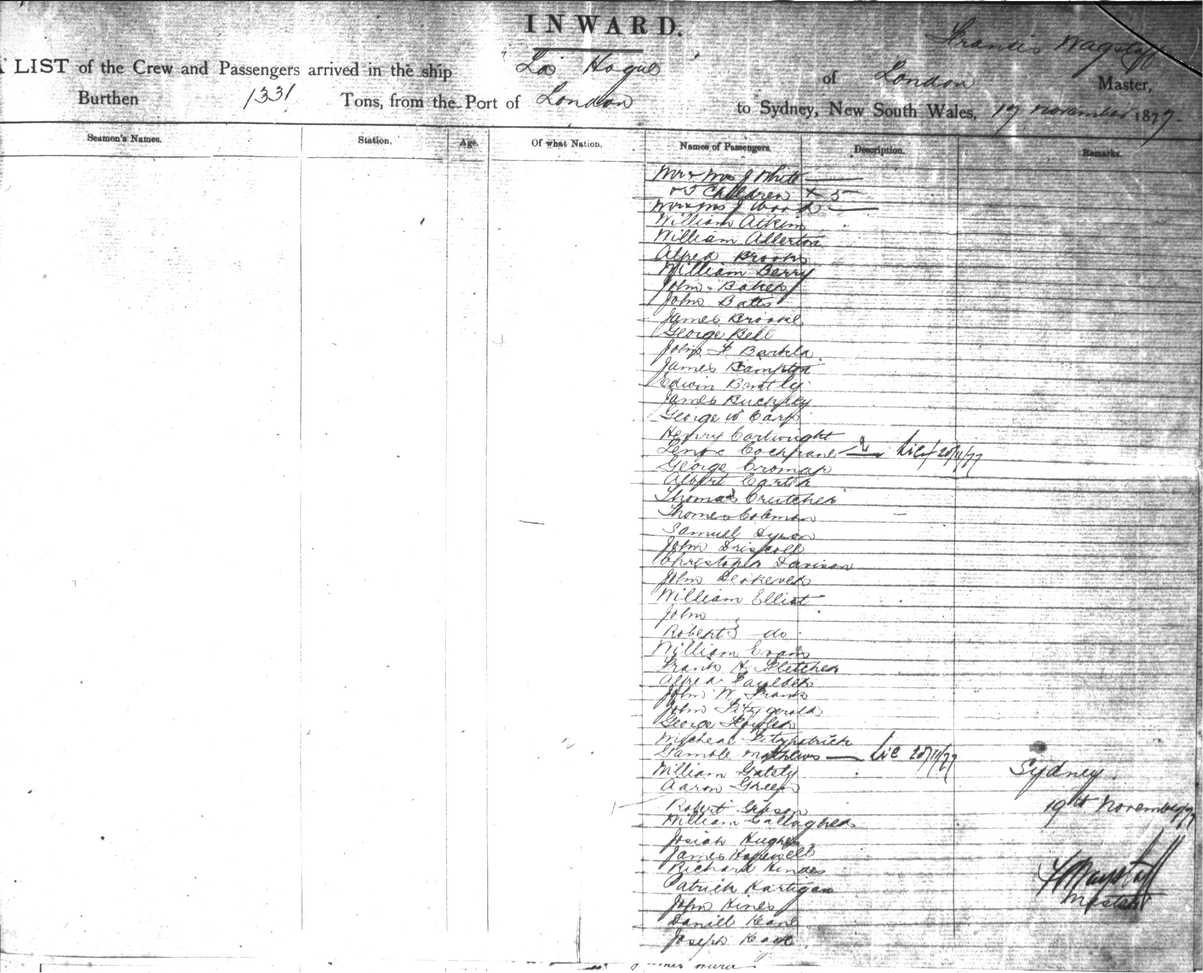 INWARD.
Francis Wagstaff
A LIST of the Crew and Passengers arrived in the ship "La Hogue" of London Master,
Burthen 1331 Tons, from the Port of London to Sydney, New South Wales, 19 November 1877.
Seamen's Names. Station. Age. Of what Nation. Names of Passengers. Description. Remarks.
Mr & Mrs J White
& 5 Children + 5
Mr & Mrs J Wood 2
William Atkins
William Allerton
Alfred Brooks
William Berry
John Baker
John Bates
James Brooke
George Bell
John F Barkla
James Bampton
Edwin
James
George W
Henry Cartwright
Cochrane Lic 20/11/77
George
Albert Carter
Thomas Crutcher
Thomas Coleman
Samuel Dyson
John Driscoll
Christopher Davison
John
William Elliot
John
Robert do
William Evans
Frank H. Fletcher
Alfred
John W. Franks
John Fitzgerald
George Fowler
Micheal Fitzpatrick
Mathews Lic 20/11/77
William
Aaron Green
Robert Gibson
William Gallagher
Josiah Hughes
James Hopewell
Richard Hindes
Patrick Hartigan
John Hines
Daniell Keane
Joseph
Sydney
19th November 77
F Wagstaff
Master